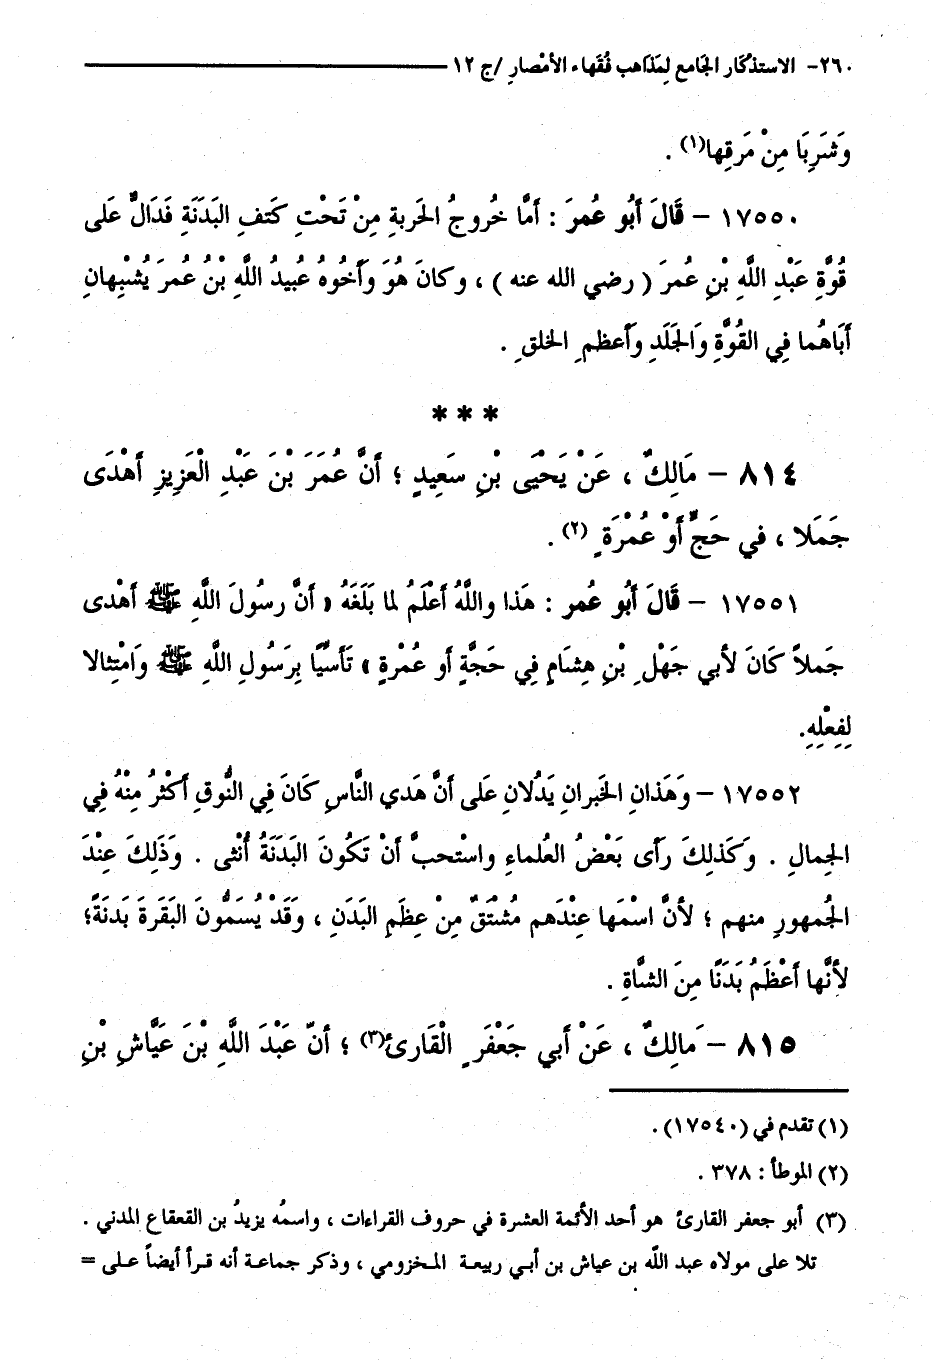 ٢٦٠- الاستذْكَار الجَامع لِمَذَاهب فُقَهاء الأمْصارِ /ج ١٢
وَشَرِبَا مِنْ مَرَقِها(١) .
١٧٥٥٠ – قَالَ أَبُو عُمرَ : أَمَّا خُروجُ الحَربةِ مِنْ تَحْتِ كَتفِ البَدَنَةِ فَدَالٌّ عَلى
قُوَّةِ عَبْدِ اللَّهِ بْنِ عُمرَ ( رضي الله عنه ) ، وكانَ هُوَ وَأَخُوهُ عُبيدُ اللَّهِ بْنُ عُمرَ يُشْبِهانِ
أَبَاهُما فِي القُوَّةِ وَالجَلَدِ وَأَعظم ِ الخلق ِ .
* * *
٨١٤ – مَالِكٌ ، عَنْ يَحْيَى بْنِ سَعِيدٍ ؛ أَنَّ عُمَرَ بْنَ عَبْدِ الْعَزِيزِ أَهْدَى
جَمَلا ، في حَجٍّ أَوْ عُمْرَة ٍ (٢) .
١٧٥٥١ – قَالَ أَبُو عُمر : هَذا واللَّهُ أَعْلَمُ لما بَلَغَهُ « أَنَّ رسُولَ اللَّهِ ﷺ أَهْدى
جَملاً كَانَ لأبي جَهْل ِ بْنِ هِشَامٍ فِي حَجَّةٍ أو عُمْرةٍ » تَأَسِّيًا بِرَسُولِ اللَّهِ ﷺ وَامْتِثالا
لِفِعْلِهِ.
١٧٥٥٢ – وَهَذانِ الخَبرانِ يَدُلانِ عَلى أَنَّ هَدي النَّاسِ كَانَ فِي النُّوقِ أَكْثرُ مِنْهُ فِي
الجِمالِ . وَكَذلِكَ رَأى بَعْضُ العُلماءِ واستْحبَّ أَنْ تَكُونَ البَدَنَةُ أُنْثى . وَذَلِكَ عِنْدَ
الجُمهورِ منهم ؛ لأنَّ اسْمَها عِنْدَهم مُشْتَقٌ مِنْ عِظَمِ البَدَنِ ، وَقَدْ يُسَمُّونَ البَقَرةَ بَدنَةً؛
لأنَّها أَعْظَمُ بَدَنًا مِنَ الشَّاةِ .
٨١٥ – مَالِكٌ ، عَنْ أَبي جَعْفَر ٍ الْقَارئ(٣) ؛ أَنّ عَبْدَ اللَّهِ بْنَ عَيَّاشِ بْنِ
(١) تقدم في (١٧٥٤٠) .
(٢) الموطأ : ٣٧٨ .
(٣) أبو جعفر القارئ هو أحد الأئمة العشرة في حروف القراءات ، واسمهُ يزيدُ بن القعقاع المدني .
تلا على مولاه عبد اللّه بن عياش بن أبـي ربيعـة المـخزومي ، وذكر جماعـة أنه قـرأ أيضاً عـلى =